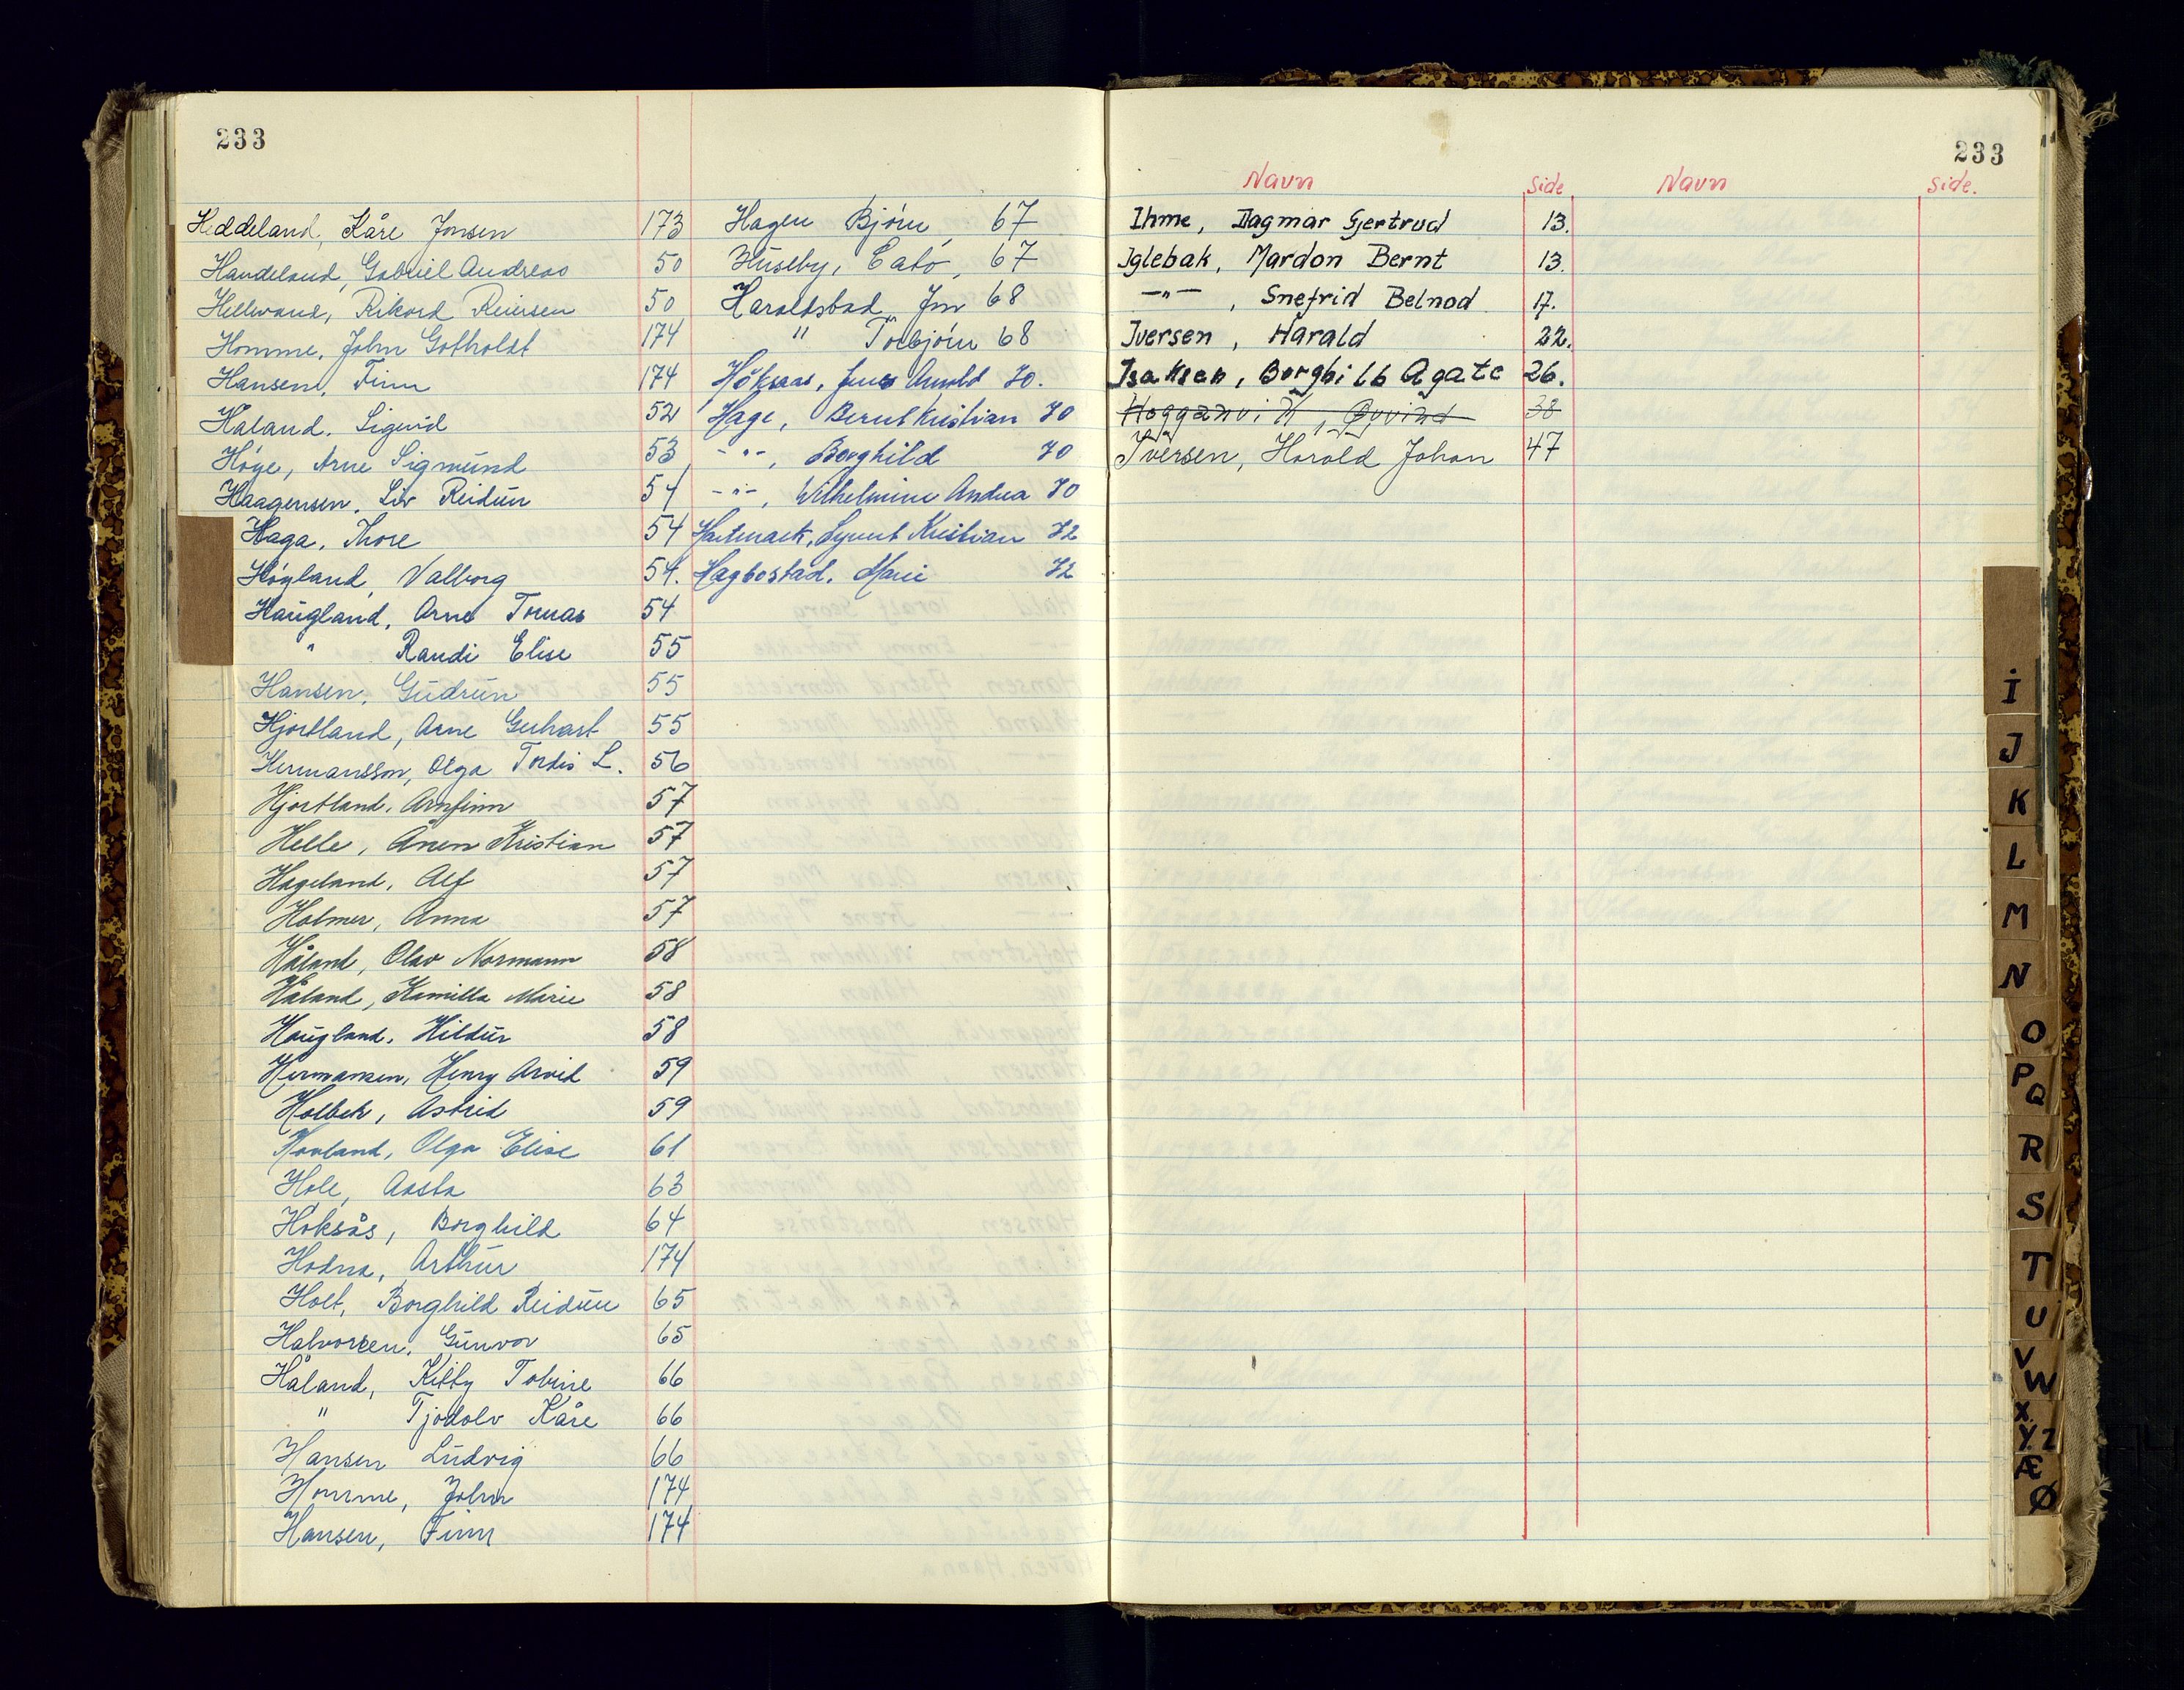 233
Heddeland, Kåre Jonsen 173
Handeland, Gabriel Andreas 50
Hellevand, Rikard Reiersen 50
Homme, John Gotholdt 174
Hansen, Finn 174
Håland, Sigurd 52
Høye, Arne Sigmund 53
Haagensen, Liv Reidun 54
Haga, Thore 54
Høyland, Valborg 54.
Haugland, Arne Tomas 54
" Randi Elise 55
Hansen, Gudrun 55
Hjortland, Arne Gerhart 55
Hermansson, Olga Tordis L. 56
Hjortland, Arnfinn 57
Helle, Ånen Kristian 57
Hageland, Alf 57
Holmer, Anna 57
Håland, Olav Normann 58
Håland, Kamilla Marie 58
Haugland, Hildur 58
Hermansen, Henry Arvid 59
Holbek, Astrid 59
Hovland, Olga Elise 61
Hole, Aasta 63
Høksås, Borghild 64
Hodna, Arthur 174
Holt, Borghild Reidun 65
Halvorsen, Gunvor 65
Håland, Kitty Tobine 66
" Tjodolv Kåre 66
Hansen Ludvig 66
Homme, John 174
Hansen, Finn 174
Hagen Bjørn, 67
Huseby, Cato, 67
Haraldsbad Jon 68
" Torbjørn 68
Høksaas, Jens Arnold 70.
Hage, Bernt Kristian 70
-"-, Borghild 70
-"-, Wilhelmine Andrea 70
Hartmark, Kristian 72
Hagbostad, Marie 72
233
Navn Side Navn Side.
Ihme, Dagmar Gjertrud 13.
Iglebak, Mardon Bernt 13.
-"-, Snefrid Belnod 17.
Iversen, Harald 22.
Isaksen, Borghild Agate 26.
Høgganvik, Øyvind 38
Iversen, Harald Johan 47
I
J
K
L
M
N
O
P
Q
R
S
T
U
V
W
X
Y Z
Æ
Ø